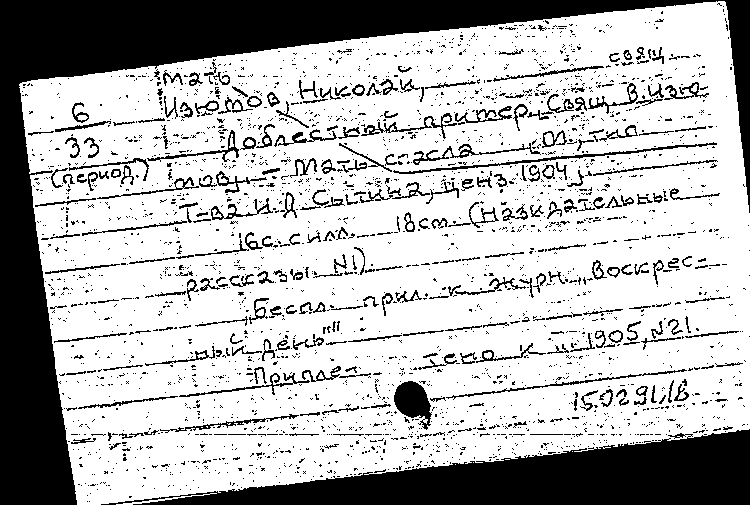 мать
6 Изюмов, Николай, свящ.
33 Доблестный пример, Свящ. В. Изю-
(период.) мову. – Мать спасла М., тип.
Т-ва И. Д. Сытина, ценз. 1904,
16с. с илл. 18см. (Назидательные
рассказы. №1).
„Беспл. прил. к журн. „Воскрес-
ный день""
Припле- тено к „... 1905, №21.
15.0291.18